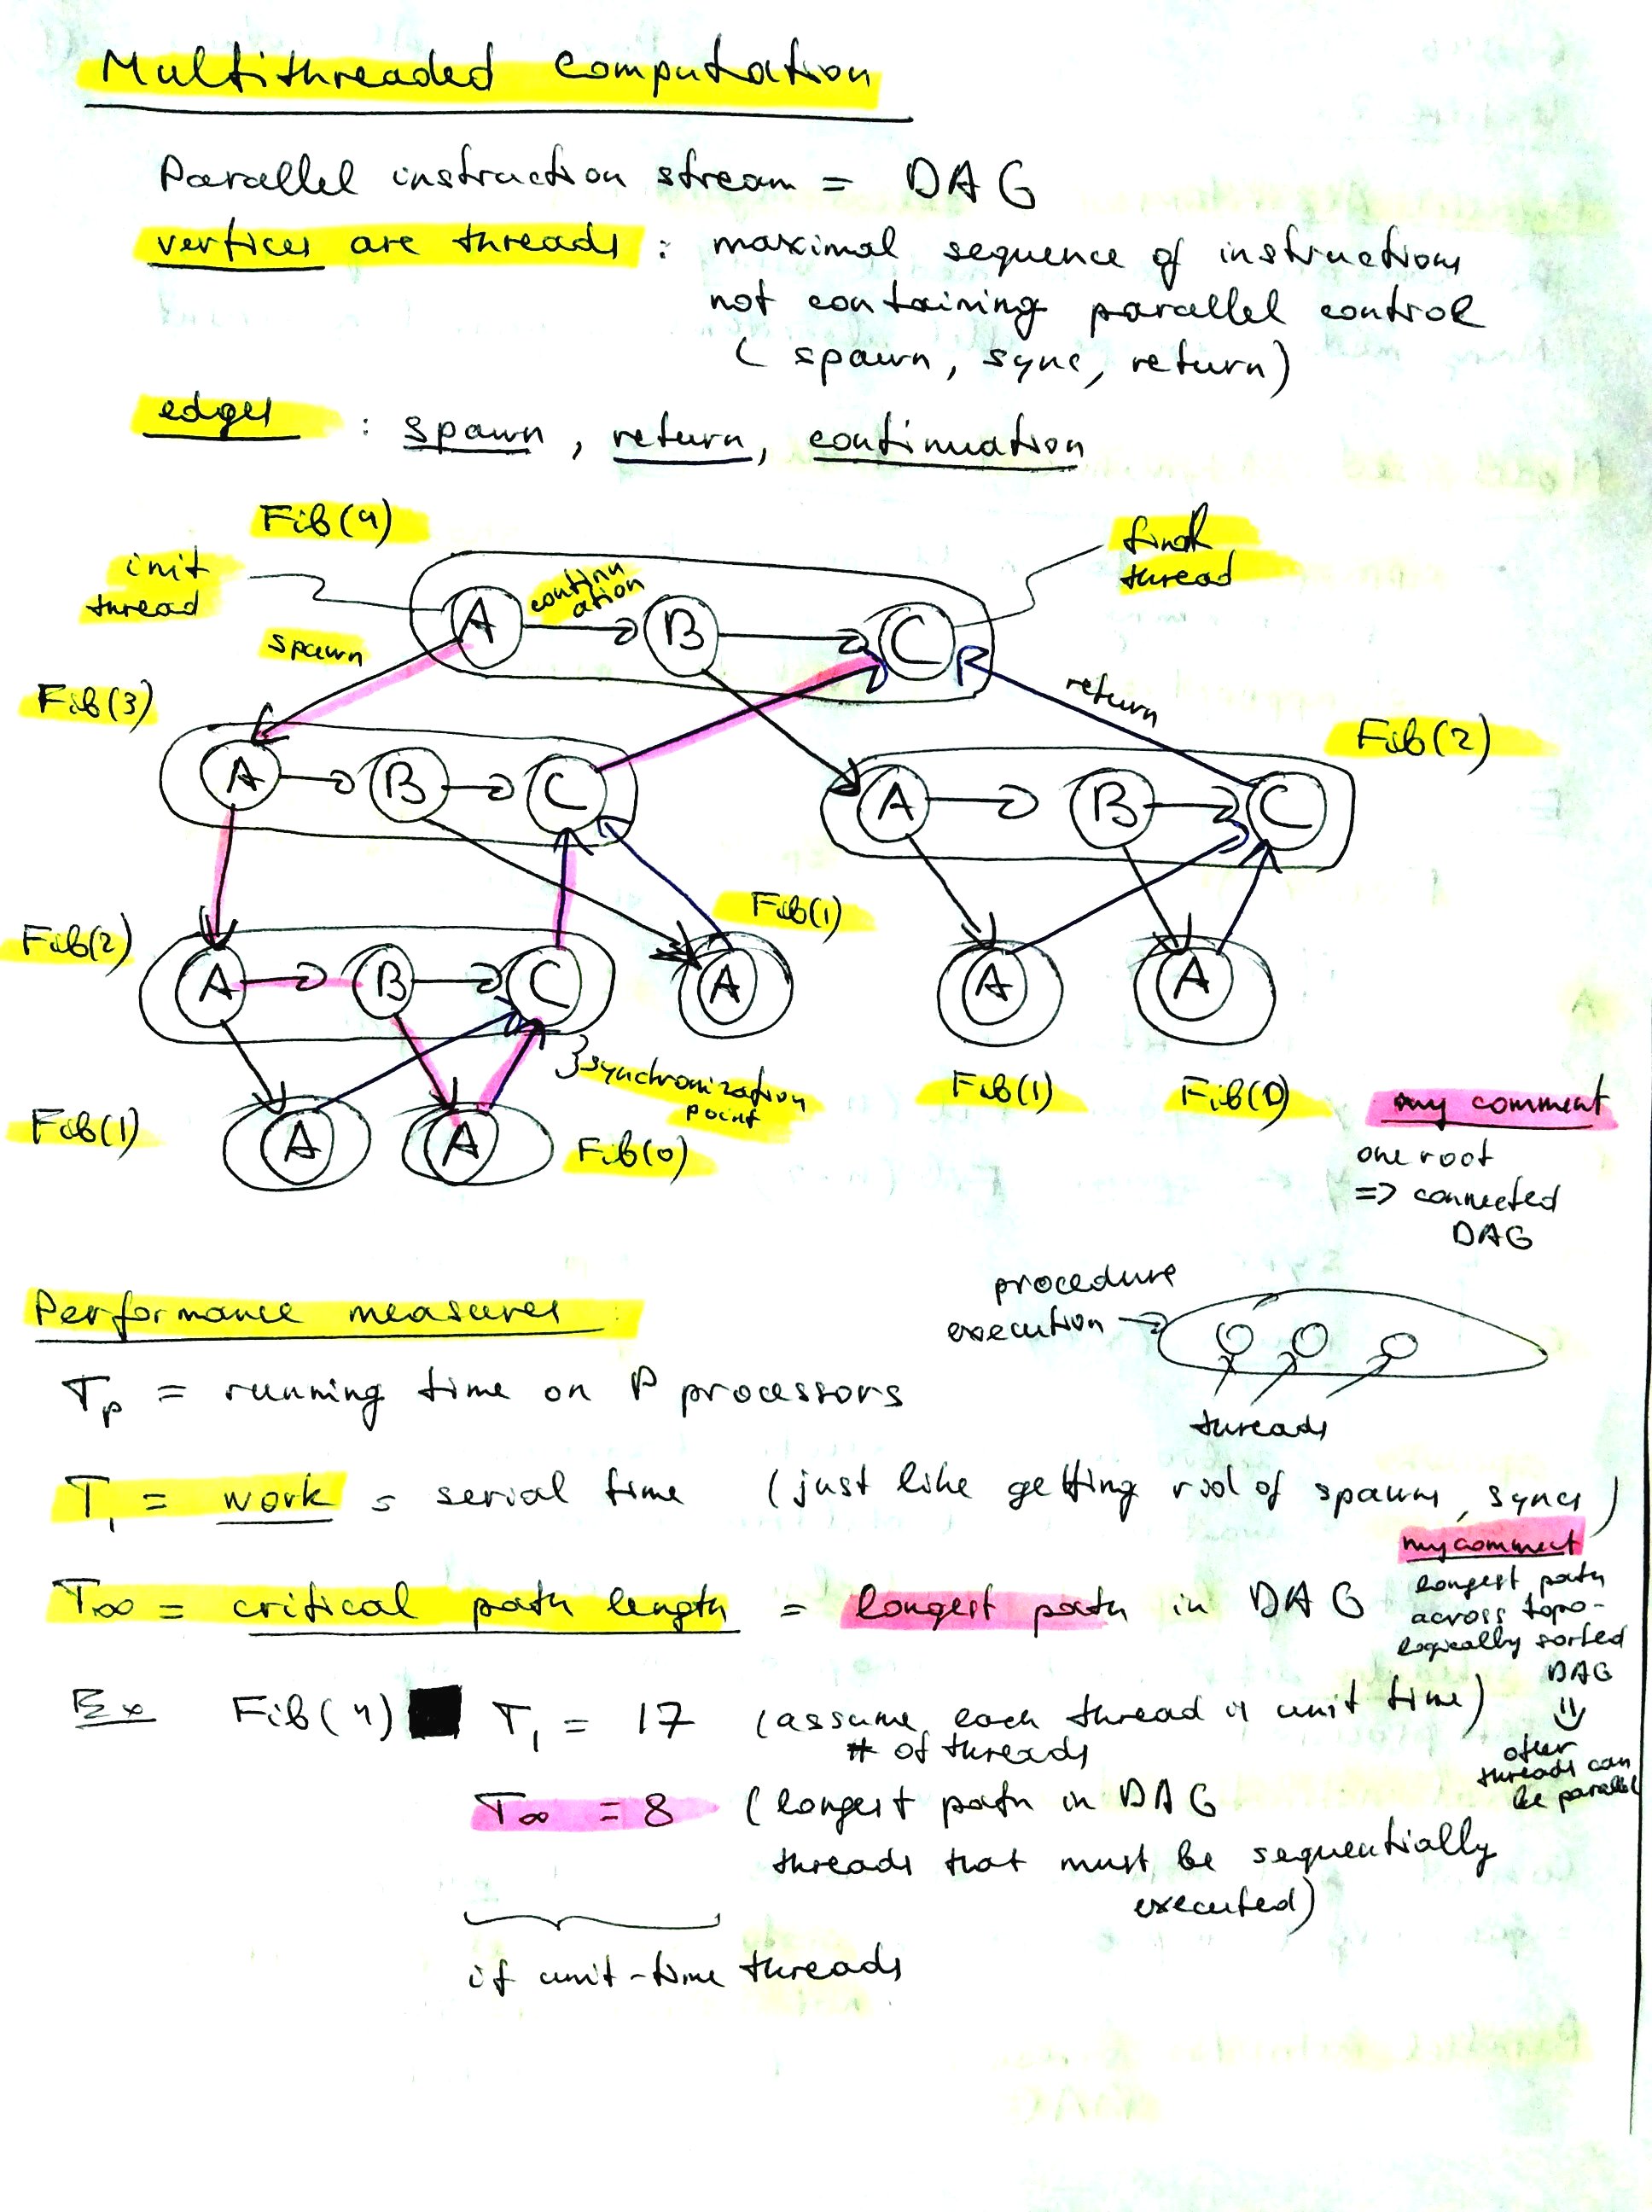 Multithreaded computation
Parallel instruction stream = DAG
vertices are threads : maximal sequence of instructions
not containing parallel control
( spawn, sync, return)
edges : spawn, return, continuation
Fib(4)
init
thread
continu
ation
final
thread
A
B
C
spawn
return
Fib(3)
Fib(2)
A
B
C
A
B
C
Fib(2)
Fib(1)
A
B
C
A
A
A
synchronization
point
Fib(1)
A
A
Fib(0)
Fib(1)
Fib(0)
my comment
one root
=> connected
DAG
Performance measures:
procedure
execution
threads
Tp = running time on P processors
T1 = work = serial time (just like getting rid of spawns, syncs)
T∞ = critical path length = longest path in DAG
my comment
longest path
across topo-
logically sorted
DAG
other
threads can
be parallel
Ex Fib(4) T1 = 17 (assume each thread is unit time)
# of threads
T∞ = 8 (longest path in DAG
threads that must be sequentially
executed)
if unit-time threads